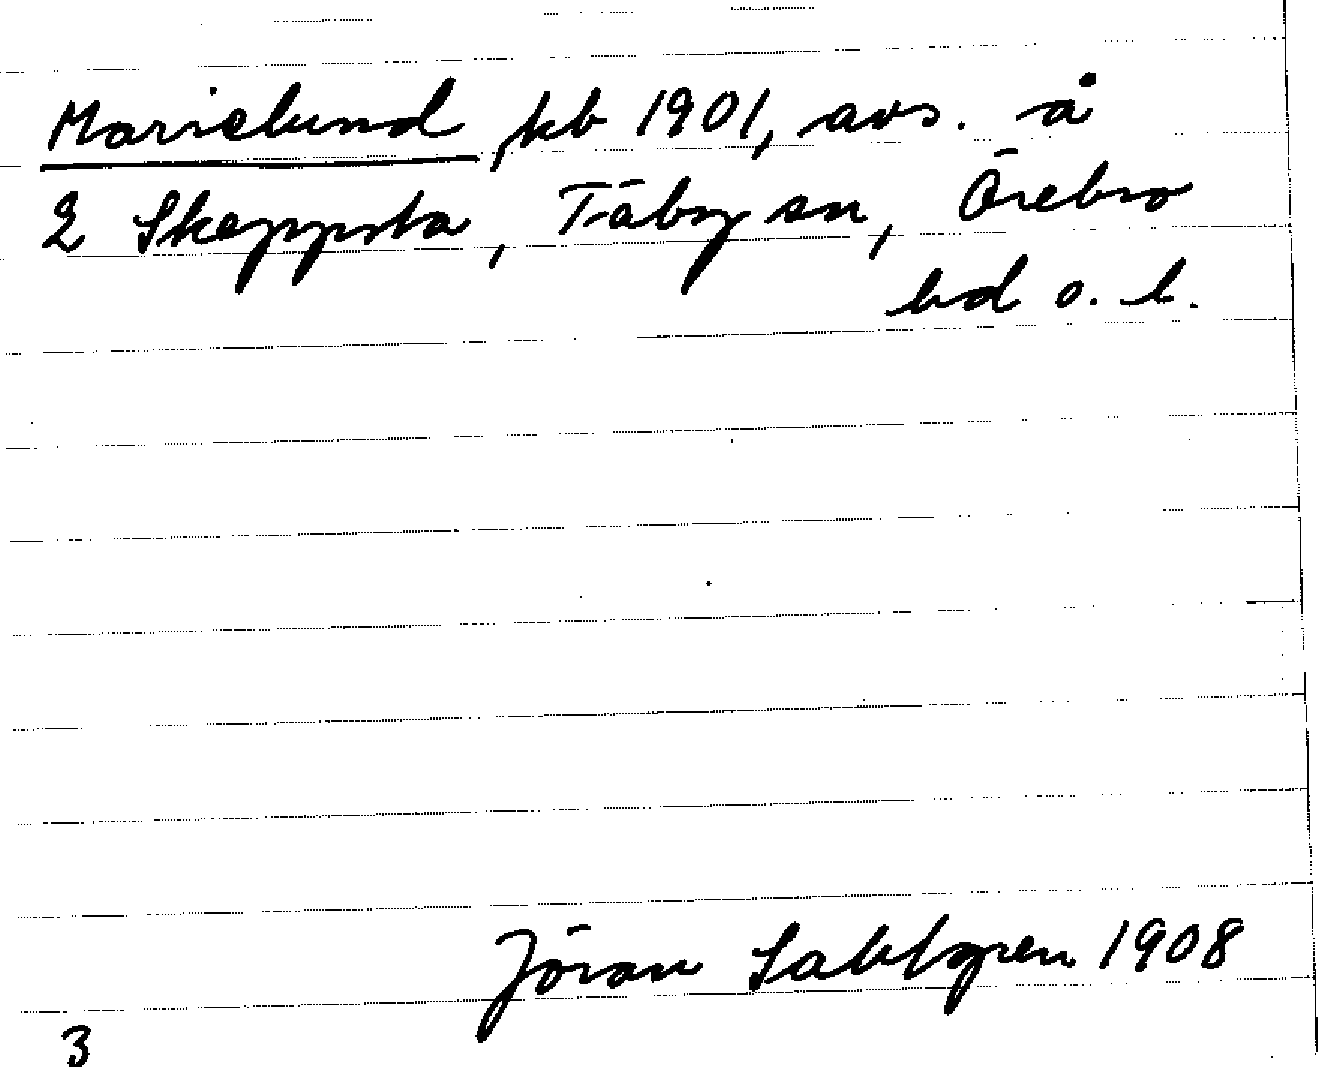 Marielund, kb 1901, avs. å
2 Skeppsta, Täby sn, Örebro
hd o. l.
Jöran Sahlgren 1908
3